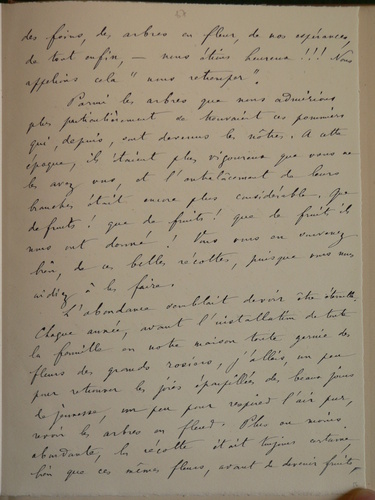 des foins, des arbres en fleur, de nos espérances,
de tout enfin, — nous étions heureux !!! Nous
appelions cela "nous retremper".
Parmi les arbres que nous admirions
plus particulièrement se trouvaient ces pommiers
qui, depuis, sont devenus les nôtres. A cette
époque, ils étaient plus vigoureux que vous ne
les avez vus, et l'entrelacement de leurs
branches était encore plus considérable. Que
de fruits ! que de fruits ! que de fruits ils
nous ont donné ! Vous vous en souvenez
bien, de ces belles récoltes, puisque vous nous
aidiez à les faire.
L'abondance semblait devoir être éternelle.
Chaque année, avant l'installation de toute
la famille en notre maison toute garnie des
fleurs des grands rosiers, j'allais, un peu
pour retrouver les joies éparpillées des beaux jours
de jeunesse, un peu pour respirer l'air pur,
revoir les arbres en fleurs. Plus ou moins
abondante, la récolte était toujours certaine
bien que ces mêmes fleurs, avant de devenir fruits,